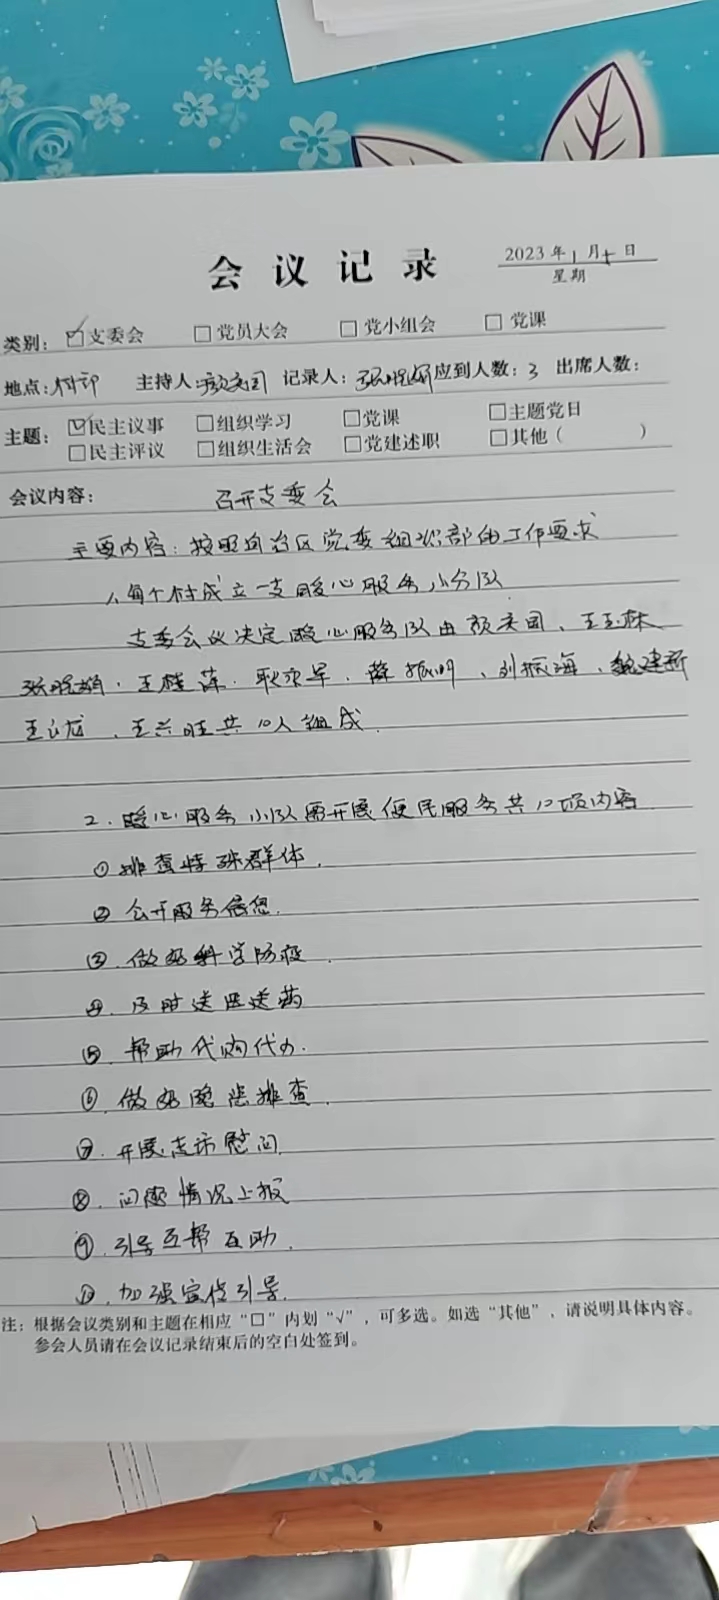 会议记录
2023年1月 日
星期
类别： ☑支委会 □党员大会 □党小组会 □党课
地点：村部 主持人： 记录人： 应到人数：3 出席人数：
主题： ☑民主议事 □组织学习 □党课 □主题党日
□民主评议 □组织生活会 □党建述职 □其他（ ）
会议内容： 召开支委会
主要内容：按照 党委组织部的工作要求
1、每个村成立一支暖心服务小分队
支委会议决定暖心服务队由 、王玉林
王桂萍、 、刘振海、魏建新
、王兴旺共10人组成
2.暖心服务小队需开展便民服务共10项内容
①排查特殊群体.
②公开服务信息.
③.做好科学防疫.
④.及时送医送药
⑤.帮助代购代办.
⑥.做好隐患排查.
⑦.开展走访慰问.
⑧.问题情况上报
⑨.引导互帮互助.
⑩.加强宣传引导.
注：根据会议类别和主题在相应“□”内划“√”，可多选。如选“其他”，请说明具体内容。
参会人员请在会议记录结束后的空白处签到。